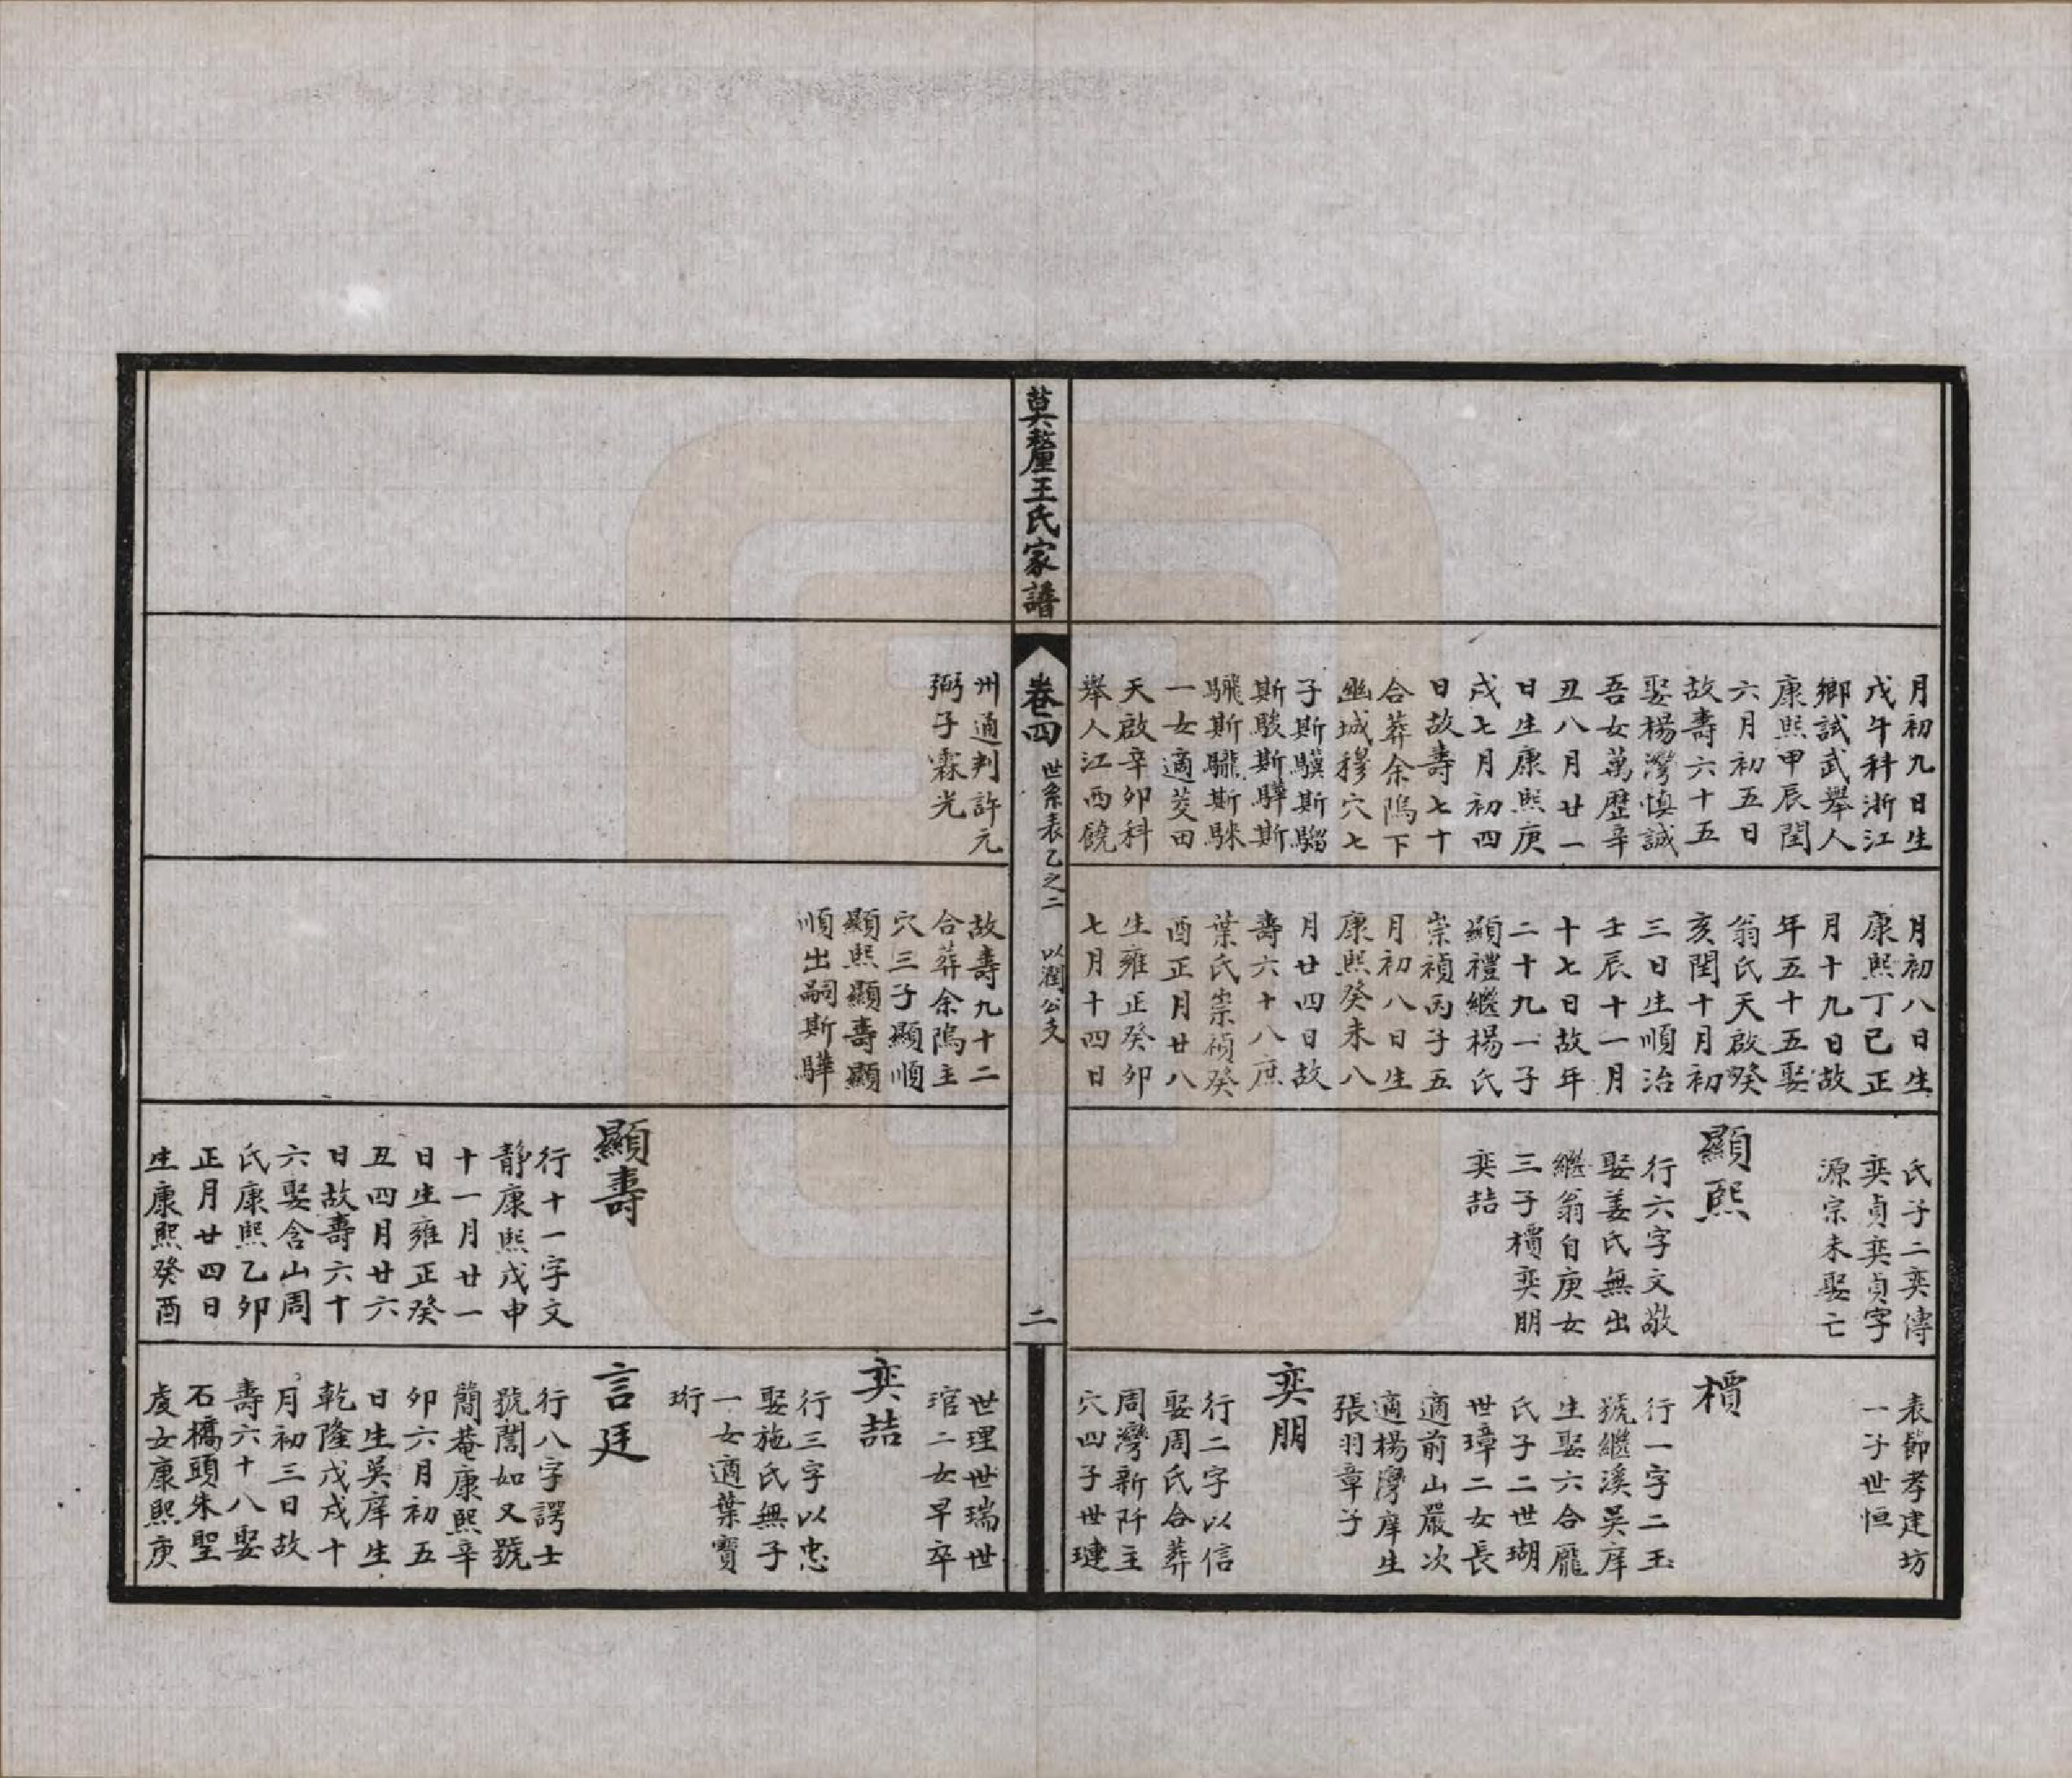 月初九日生
戊午科浙江
鄉試武舉人
康熙甲辰閏
六月初五日
故壽六十五
娶楊灣慎誠
吾女萬歷辛
丑八月廿一
日生康熙庚
戌七月初四
日故壽七十
合葬余隖下
幽城穆穴七
子斯驥斯騮
斯駿斯驊斯
驖斯驪斯騋
一女適茭田
天啟辛卯科
舉人江西饒
月初八日生
康熙丁巳正
月十九日故
年五十五娶
翁氏天啟癸
亥閏十月初
三日生順治
壬辰十一月
十七日故年
二十九一子
顯禮繼楊氏
崇禎丙子五
月初八日生
康熙癸未八
月廿四日故
壽六十八庶
葉氏崇禎癸
酉正月廿八
生雍正癸卯
七月十四日
氏子二奕傳
奕貞奕貞字
源宗未娶亡
顯熙
行六字文敬
娶姜氏無出
繼翁自庚女
三子櫝奕朋
奕喆
表節孝建坊
一子世恒
櫝
行一字二玉
號繼溪吳庠
生娶六合龐
氏子二世瑚
世璋二女長
適前山嚴次
適楊灣庠生
張羽章子
奕朋
行二字以信
娶周氏合葬
周灣新阡主
穴四子世璉
莫釐王氏家譜
卷四
世系表乙之二
以潤公支
二
州通判許元
弼子霖光
故壽九十二
合葬余隖主
穴三子顯順
顯熙顯壽顯
順出嗣斯驊
顯壽
行十一字文
靜康熙戊申
十一月廿一
日生雍正癸
丑四月廿六
日故壽六十
六娶含山周
氏康熙乙卯
正月廿四日
生康熙癸酉
世理世瑞世
琯二女早卒
奕喆
行三字以忠
娶施氏無子
一女適葉寶
珩
言廷
行八字諤士
號誾如又號
簡菴康熙辛
卯六月初五
日生吳庠生
乾隆戊戌十
月初三日故
壽六十八娶
石橋頭朱聖
虔女康熙庚